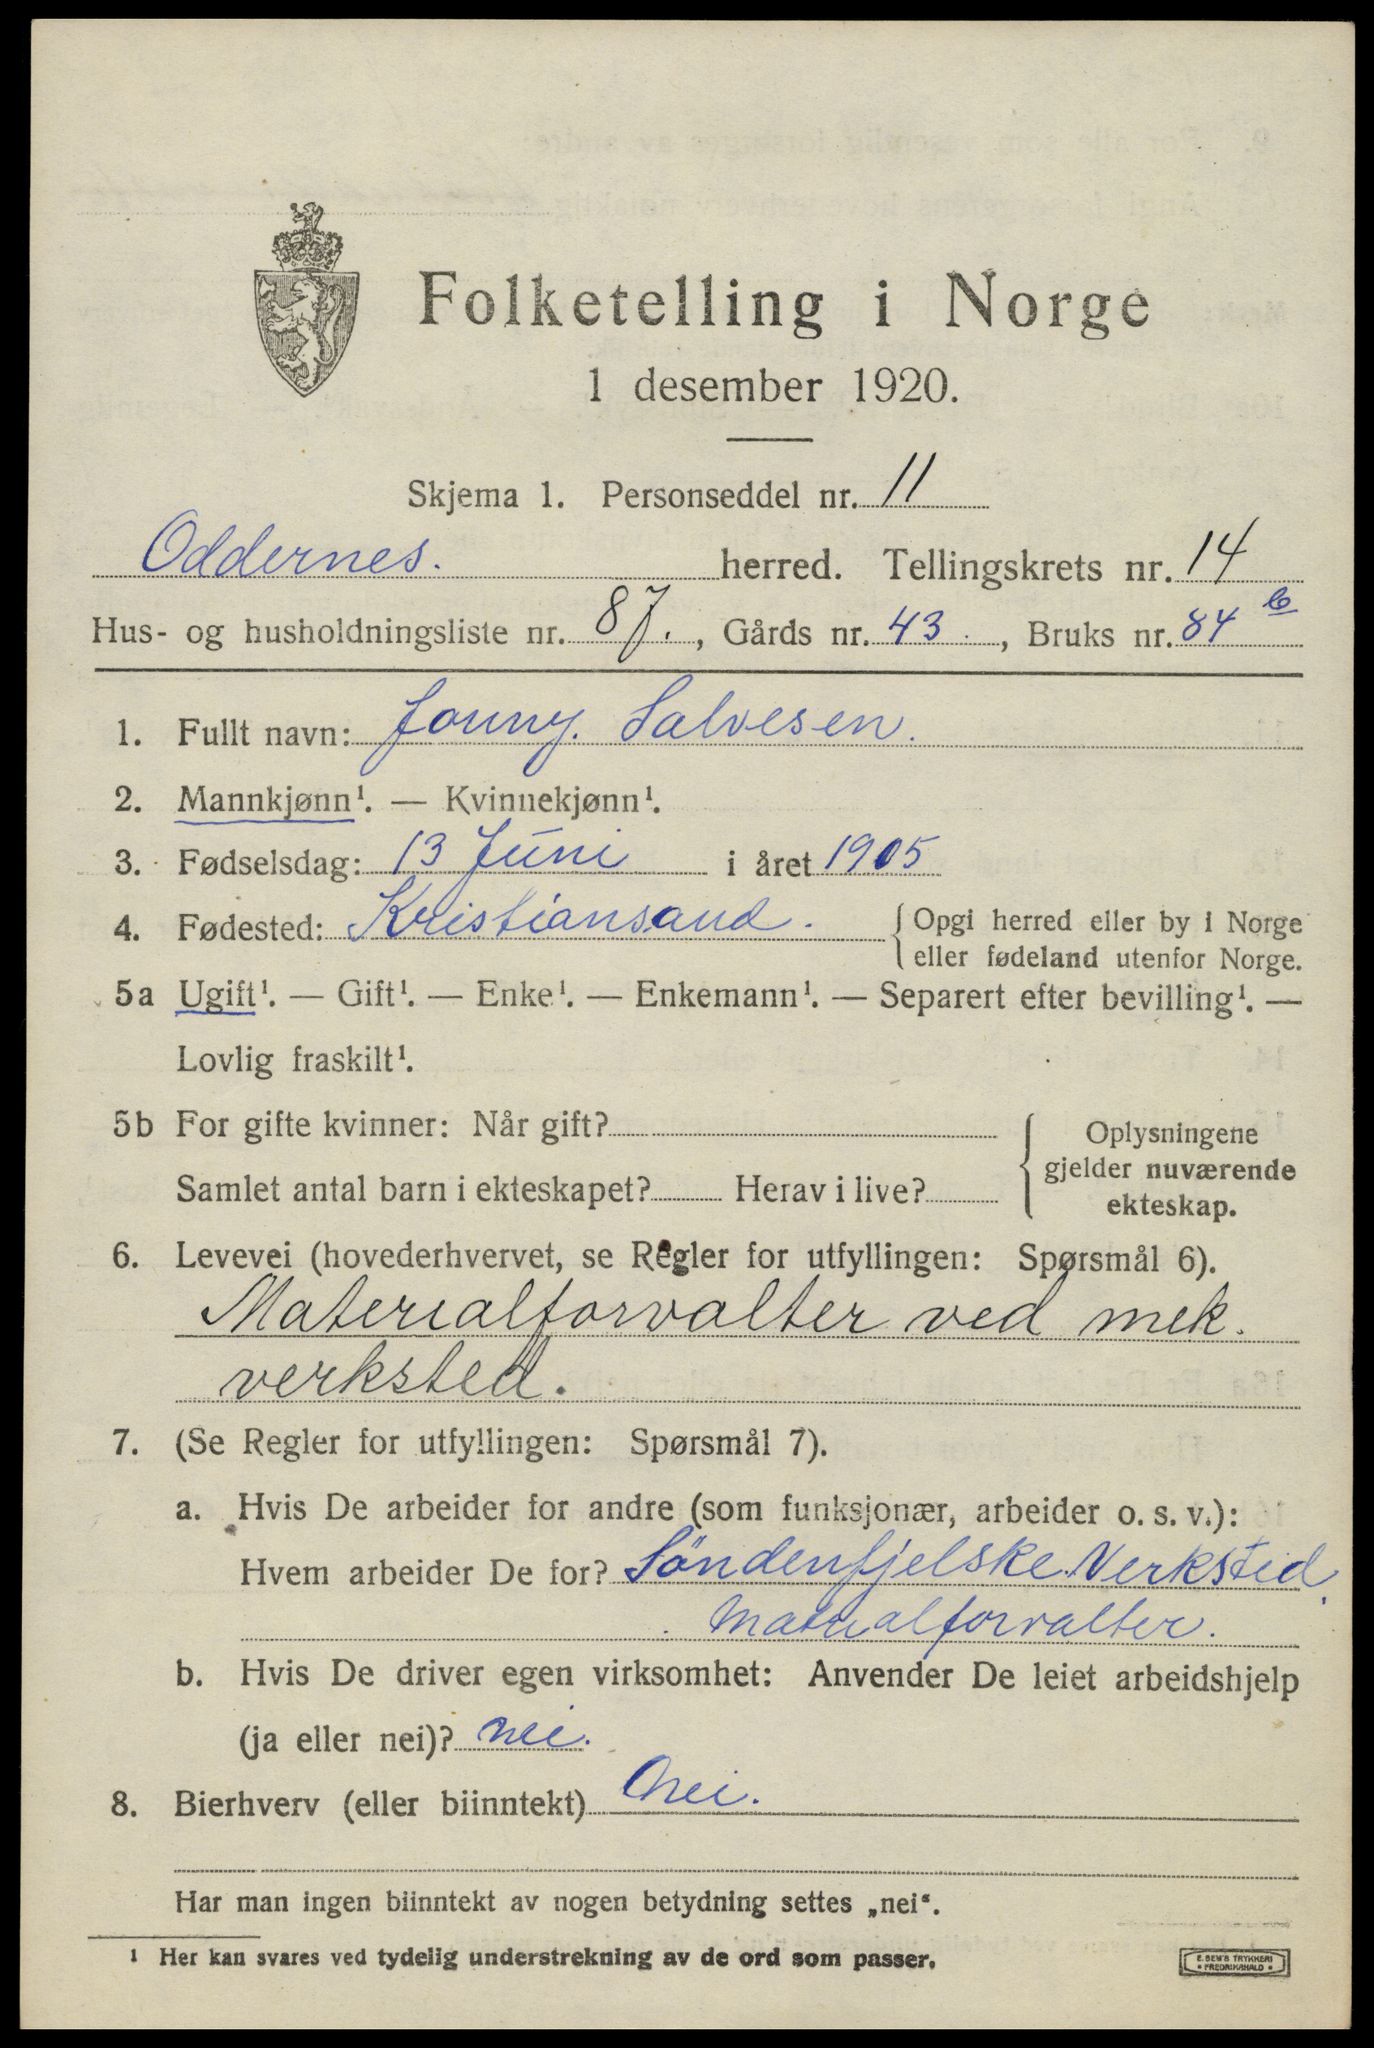 Folketelling i Norge
1 desember 1920.
Skjema 1. Personseddel nr. 11
Oddernes. herred. Tellingskrets nr. 14
Hus- og husholdningsliste nr. 87., Gårds nr. 43., Bruks nr. 84 b
1. Fullt navn: Jonny. Salvesen.
2. Mannkjønn¹. — Kvinnekjønn¹.
3. Fødselsdag: 13 Juni i året 1905
4. Fødested: Kristiansand. { Opgi herred eller by i Norge
eller fødeland utenfor Norge.
5a Ugift¹. — Gift¹. — Enke¹. — Enkemann¹. — Separert efter bevilling¹. —
Lovlig fraskilt¹.
5b For gifte kvinner: Når gift? { Oplysningene
gjelder nuværende
Samlet antal barn i ekteskapet? Herav i live?
ekteskap.
6. Levevei (hovederhvervet, se Regler for utfyllingen: Spørsmål 6).
Materialforvalter ved mek.
verksted.
7. (Se Regler for utfyllingen: Spørsmål 7).
a. Hvis De arbeider for andre (som funksjonær, arbeider o. s. v.):
Hvem arbeider De for? Söndenfjelske Verksted.
Matrialforvalter.
b. Hvis De driver egen virksomhet: Anvender De leiet arbeidshjelp
(ja eller nei)? nei.
8. Bierhverv (eller biinntekt) nei.
Har man ingen biinntekt av nogen betydning settes „nei“.
¹ Her kan svares ved tydelig understrekning av de ord som passer.
E. SEM'S TRYKKERI
• FREDRIKSHALD •